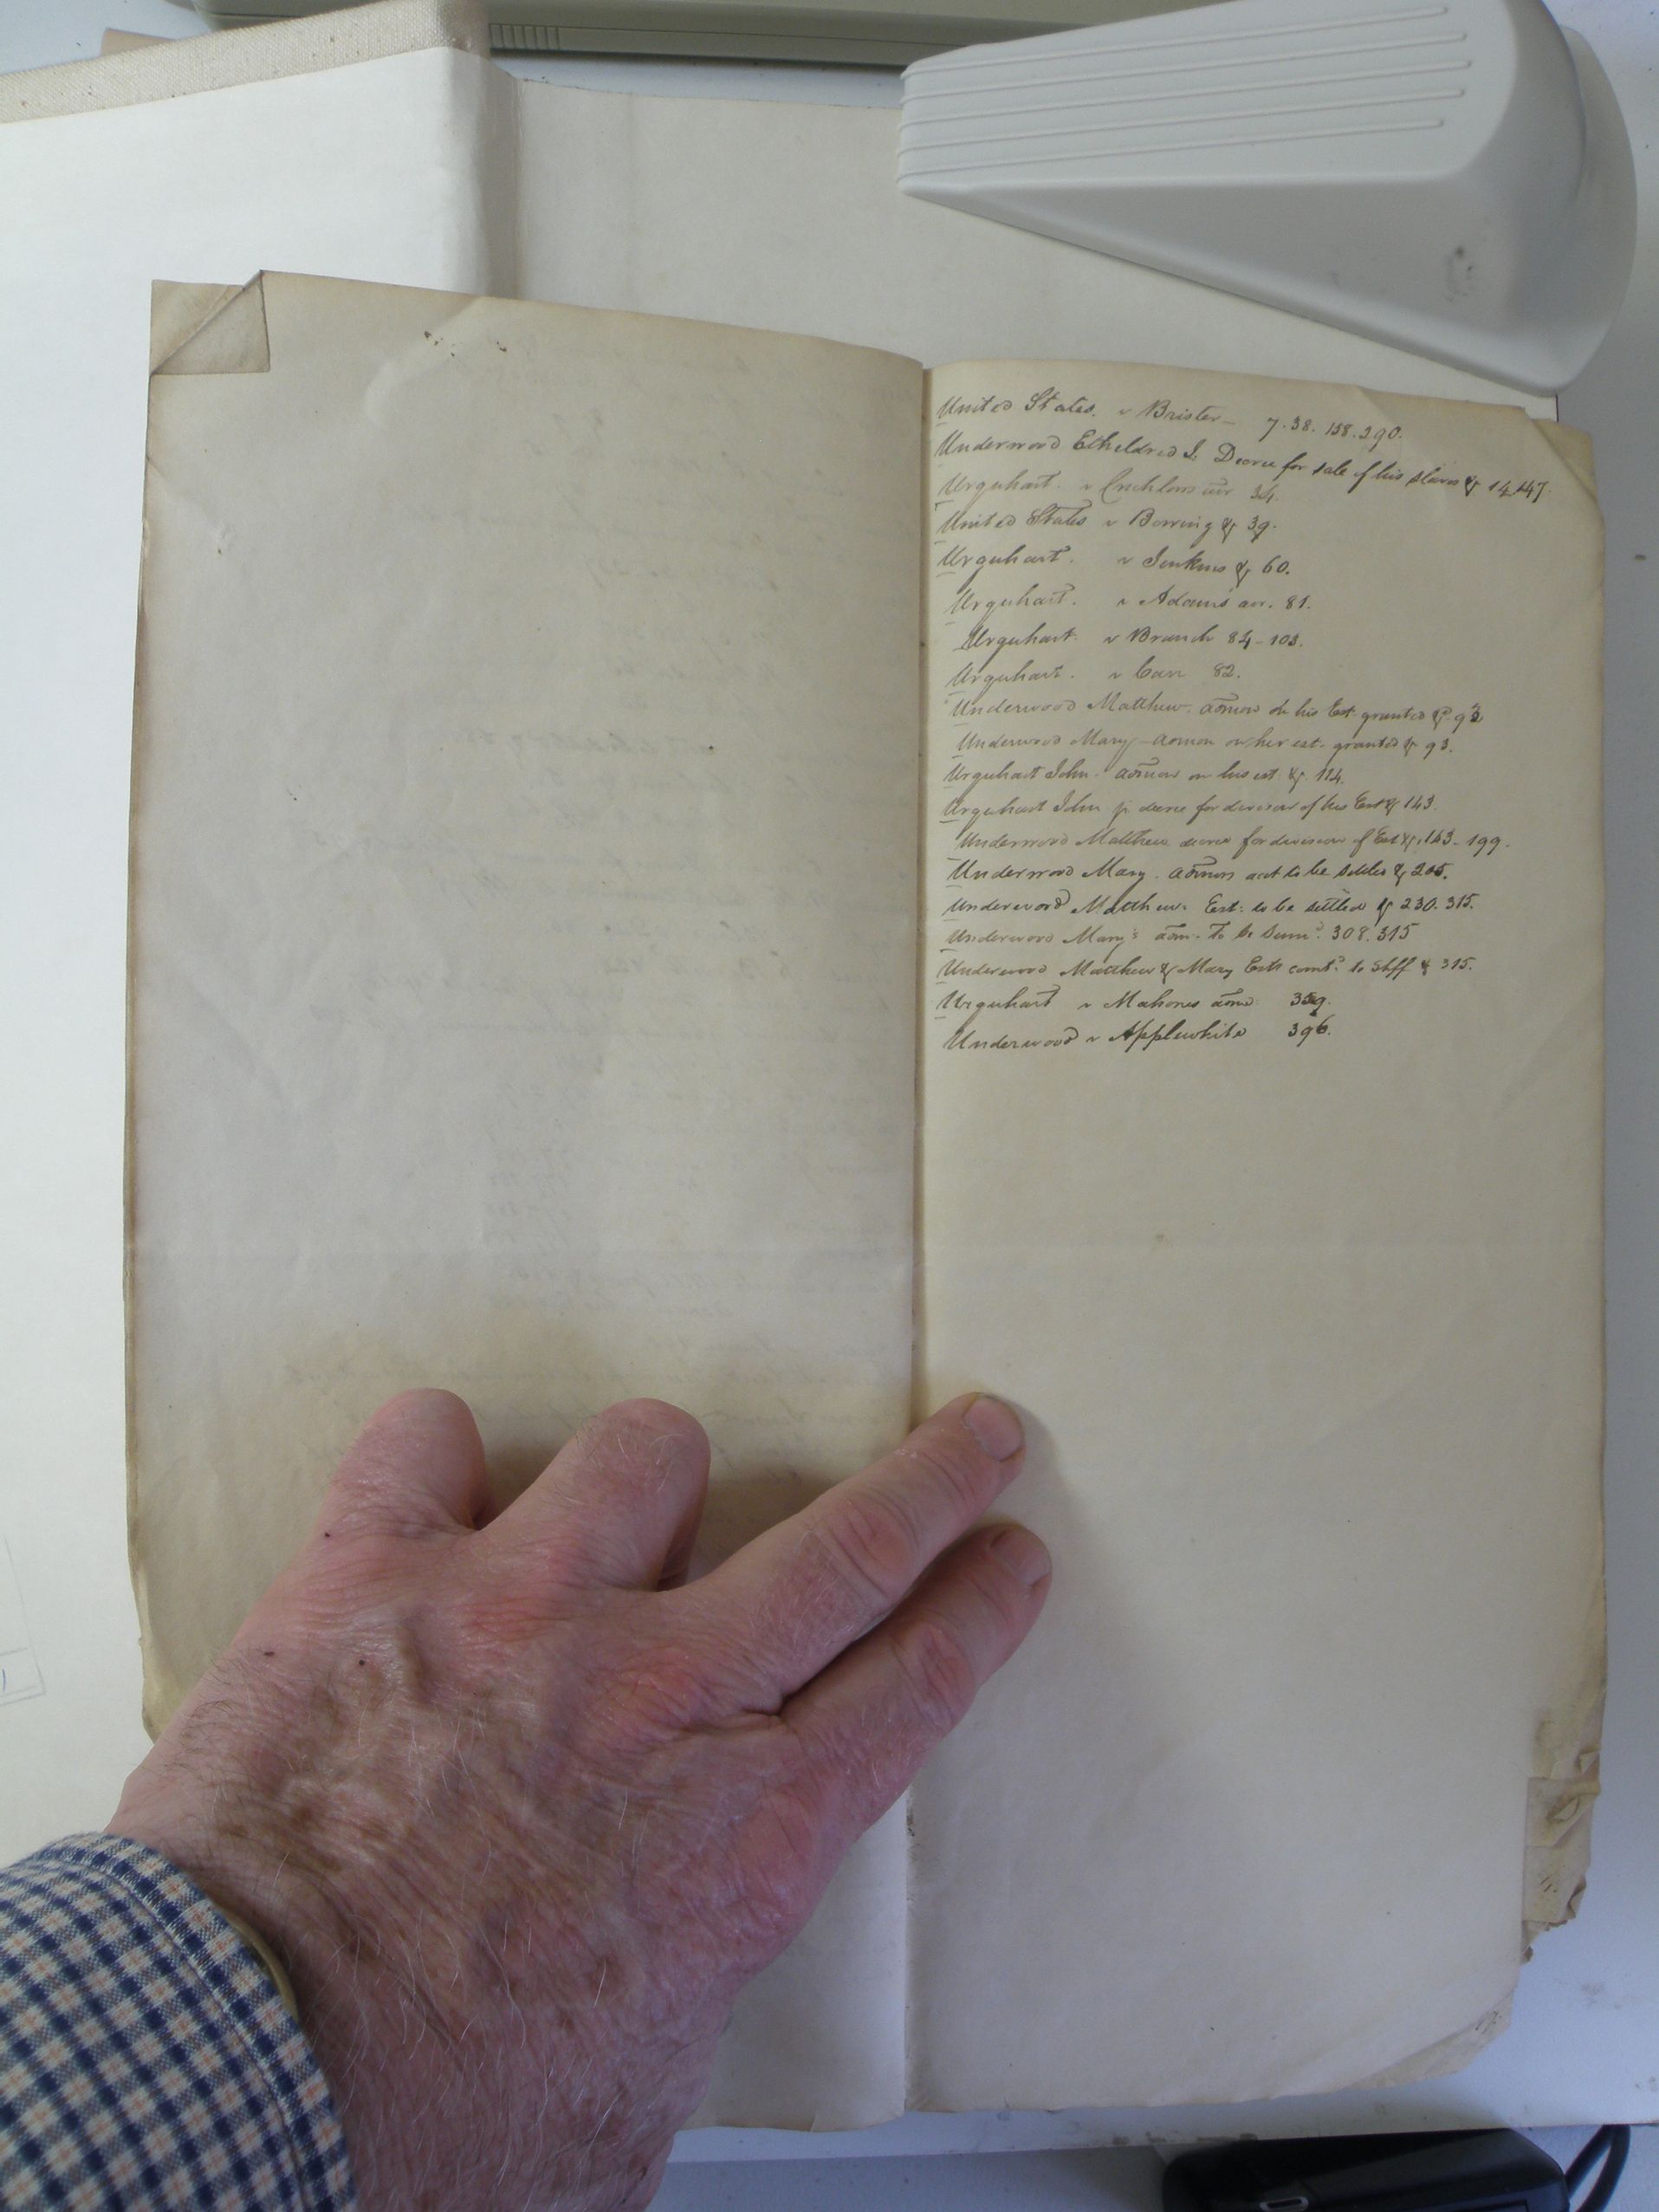 United States. v Brister - 7. 38. 158. 290.
Underwood Etheldred J. Decree for sale of his slaves & 14. 147.
Urquhart. v 34.
United States v Borring & 39.
Urquhart. v Jenkins & 60.
Urquhart. v Adams' avr. 81.
Urquhart v Branch 84 - 103.
Urquhart. v Carr 82.
Underwood Matthew. admon on his Est. granted & 93
Underwood Mary - admon on her est. granted & 93.
Urquhart John. admon on his est. & 114.
Urquhart John decree for division of his Est & 143.
Underwood Matthew decree for division of Est &. 143. 199.
Underwood Mary. admors act to be settled & 205.
Underwood Matthew. Est: to be settled & 230. 315.
Underwood Mary's adm. To be Summd. 308. 315
Underwood Matthew & Mary Ests comtd. to Shff & 315.
Urquhart v Mahones admr 359.
Underwood v Applewhite 396.